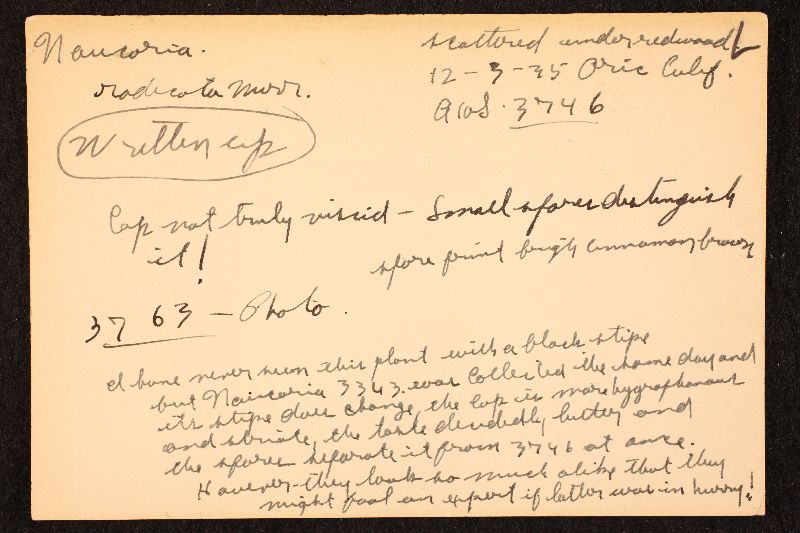 Naucoria.
scattered under redwood
radicata Murr.
12-3-35 Oric Calif.
3746
Written up
Cap not truly viscid - Small spores distinguish
it!
spore print bright cinnamon brown
3763 - Photo.
I have never seen this plant with a black stipe
but Naucoria 3343. was collected the same day and
its stipe does change, the cap is more hygrophanous
and striate, the taste decidedly bitter and
the spores separate it from 3746 at once.
However they look so much alike that they
might fool an expert if latter was in hurry!